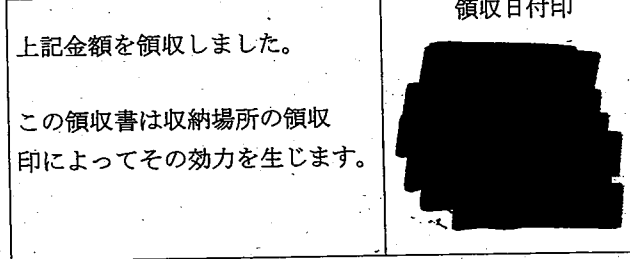 上記金額を領収しました。
この領収書は収納場所の領収
印によってその効力を生じます。
領収日付印